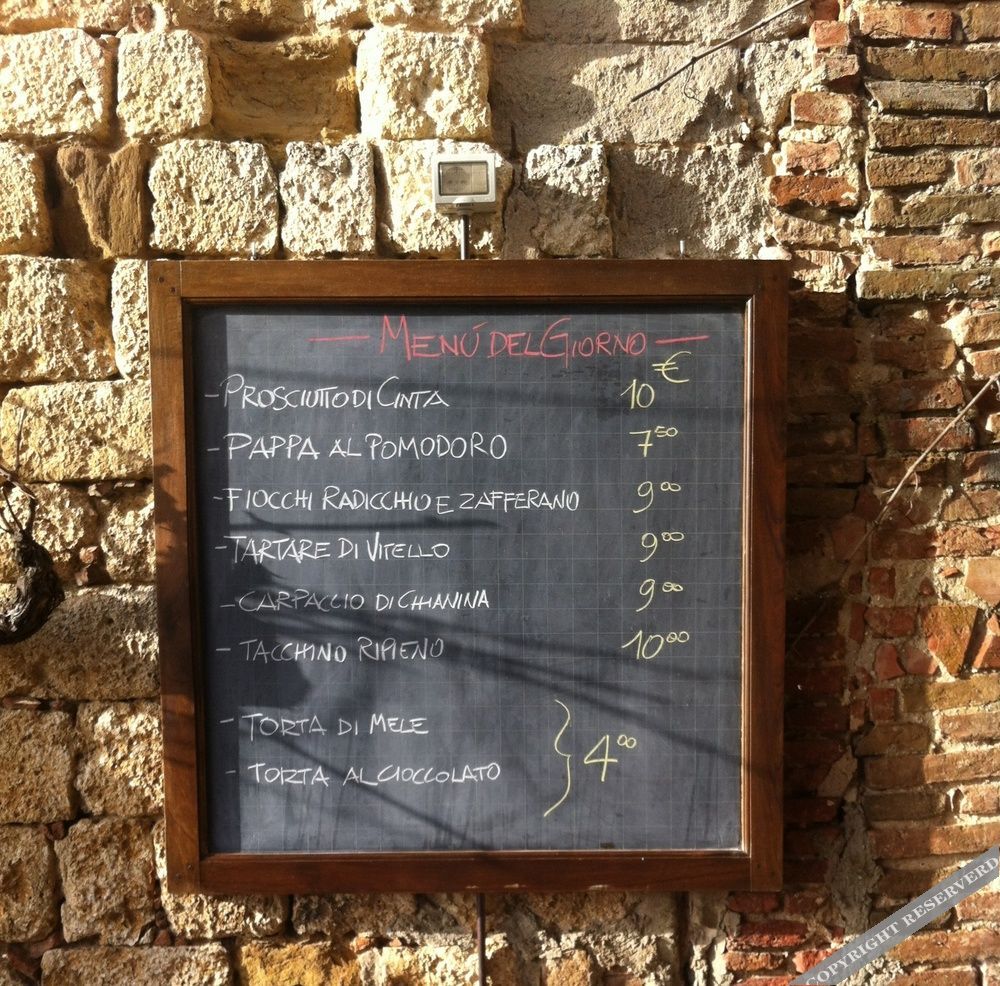 — MENÚ DEL GIORNO —
€
- PROSCIUTTO DI CINTA 10
- PAPPA AL POMODORO 7⁵⁰
- FIOCCHI RADICCHIO E ZAFFERANO 9⁰⁰
- TARTARE DI VITELLO 9⁰⁰
- CARPACCIO DI CHIANINA 9⁰⁰
- TACCHINO RIPIENO 10⁰⁰
- TORTA DI MELE
- TORTA AL CIOCCOLATO } 4⁰⁰
COPYRIGHT RESERVERD